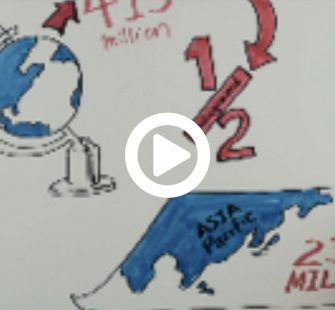 415
million
1
2
ASIA
Pacific